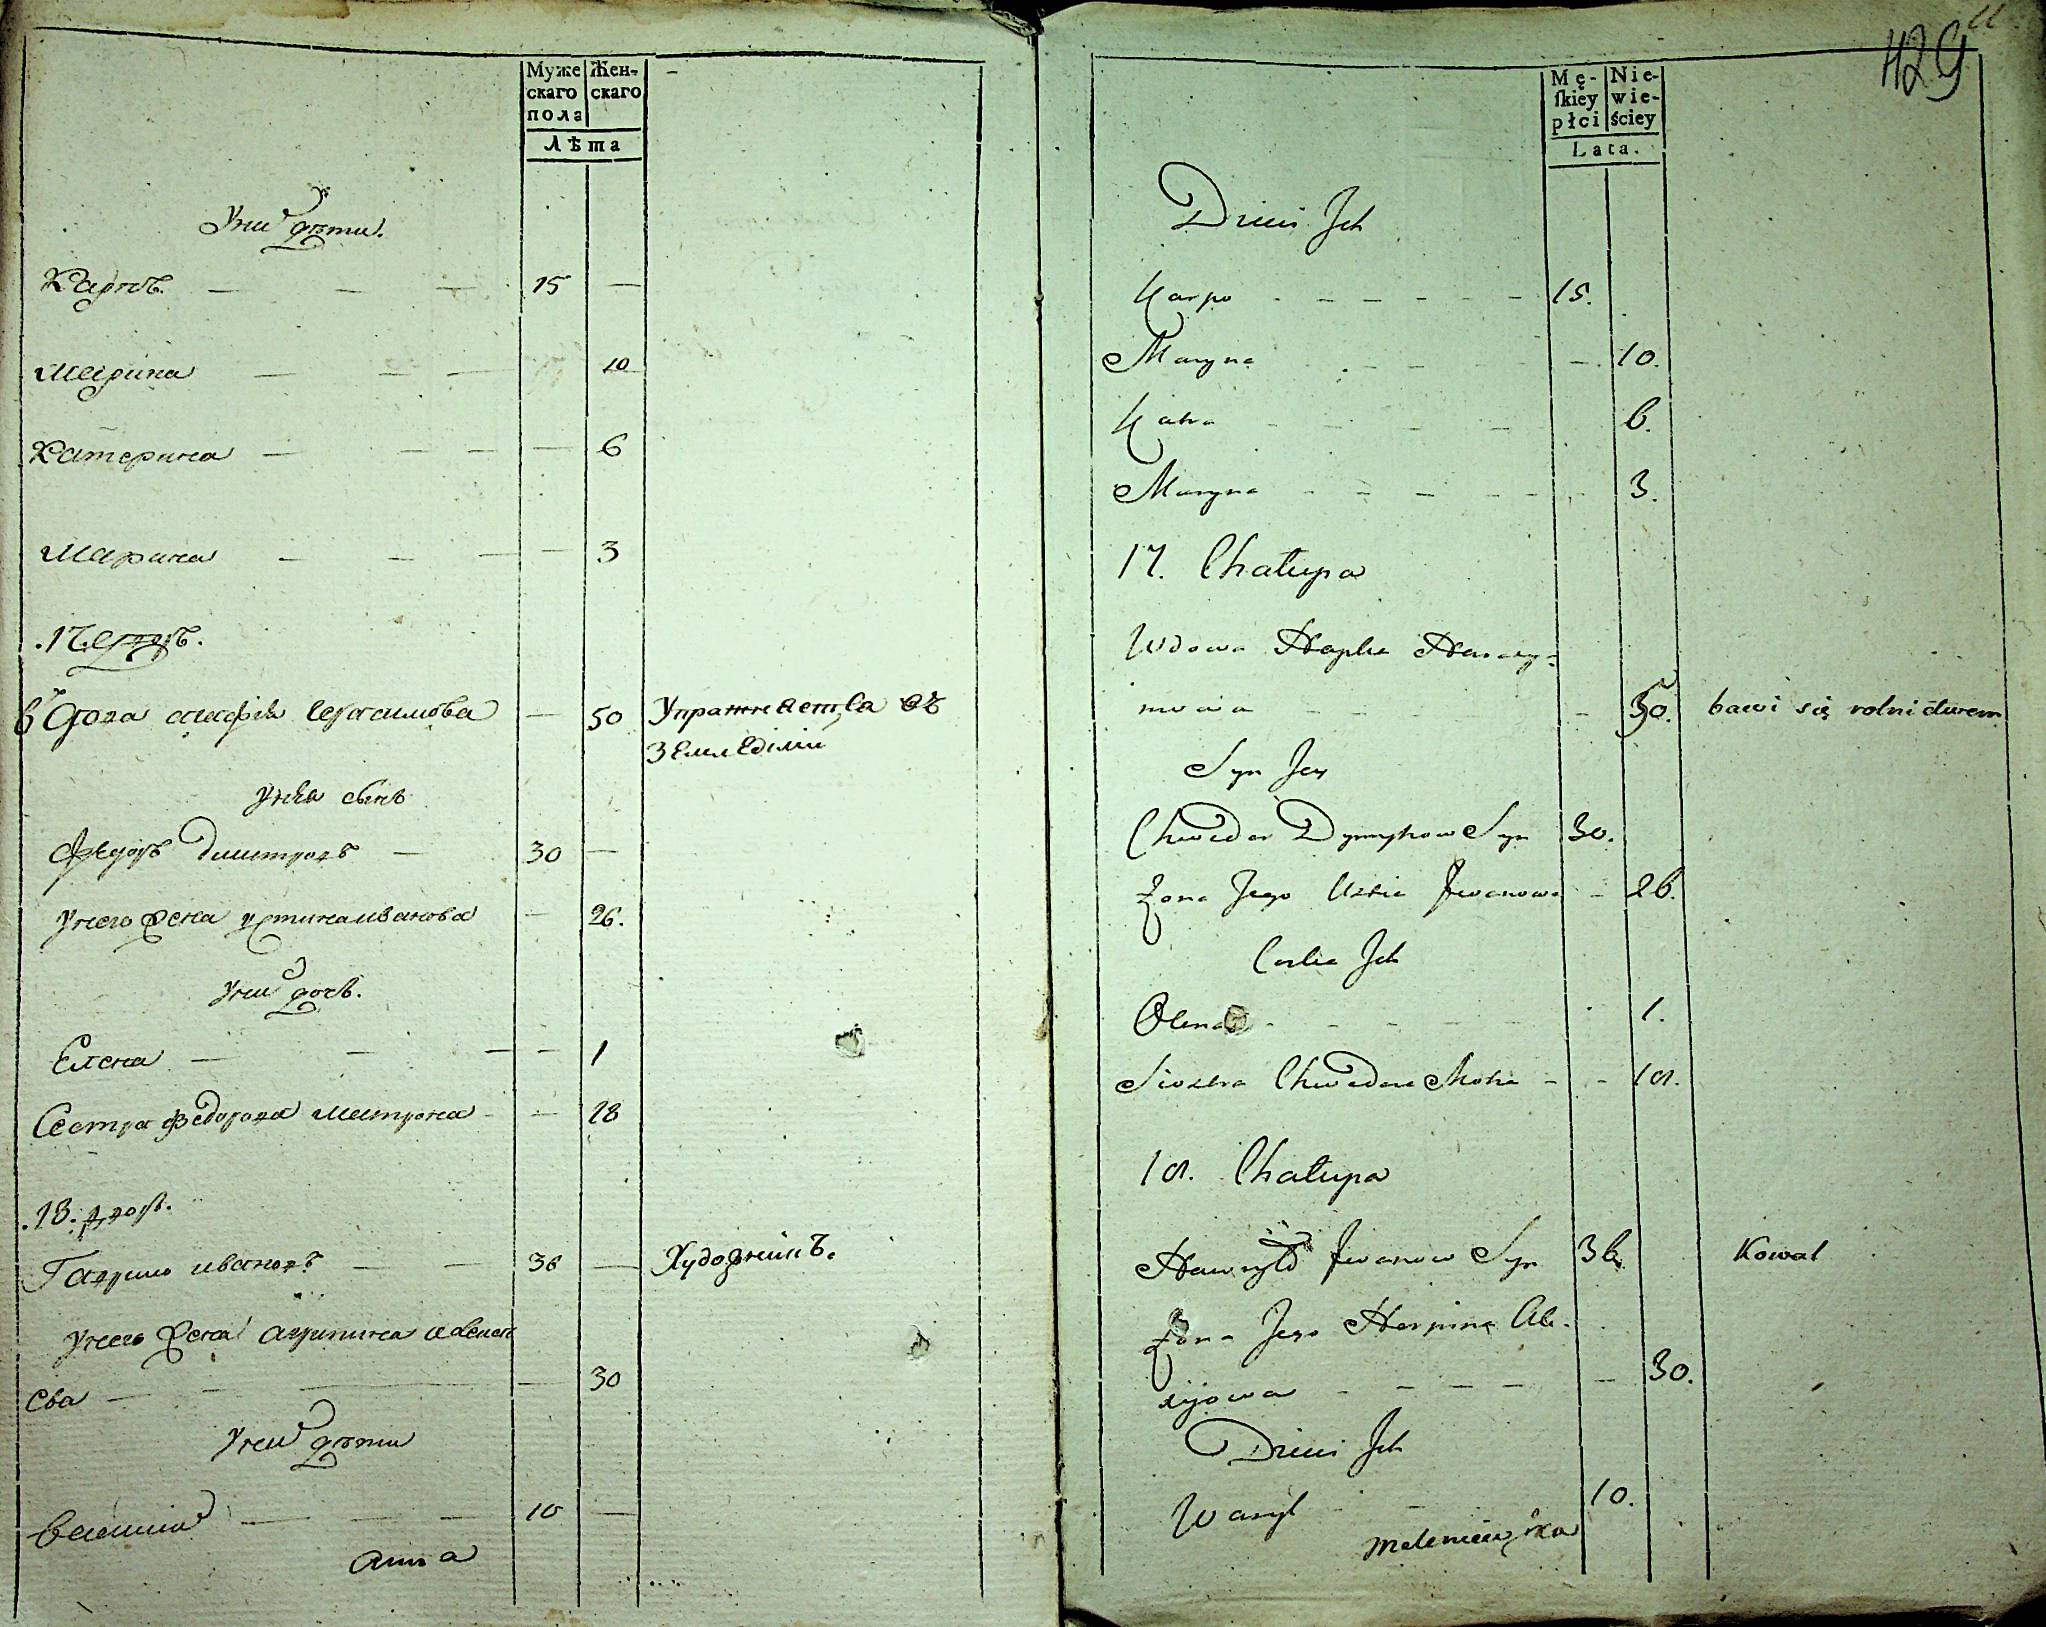 Мужескаго пола Женскаго
Лѣта
У них дѣти.
Карпъ. — — — 15 —
Марина — — — 10
Катерина — — — — 6
Марина — — — — 3
.17. дворъ.
вдова Герасимова — 50 Упражняетца въ
Земледѣлии
У нея сынъ
Федоръ Дмитровъ — 30 —
У него жена Устина иванова — 26.
У них дочь.
Елена — — — — 1
Сестра Федорова Матрона — — 18
.18. дворъ.
Гаврило ивановъ — — 36 — Художникъ.
У него жена агрипина
ева — — — — 30
У них дѣти
Василий — — — 10 —
анна
429
Mę-ſkiey płci Nie-wie-ściey
Lata.
Dzieci Jch
Karpo - - - - - - 15.
Maryna - - - - - 10.
Katra - - - - 6.
Maryna - - - - - - 3.
17. Chałupa
Wdowa Hapka Harasy-
mowa - - - - - - 50. bawi się rolnictwem
Syn Jey
Chwedor Dymytrow Syn 30.
Żona Jego Ustia Jwanowa - 26.
Corka Jch
Olena - - - - - 1.
Siostra Chwedora Motra - - 18.
18. Chałupa
Hawryło Jwanow Syn 36. Kowal
Żona Jego Harpina Ale-
xijowa - - - - - 30.
Dzieci Jch
Wasyl - - 10.